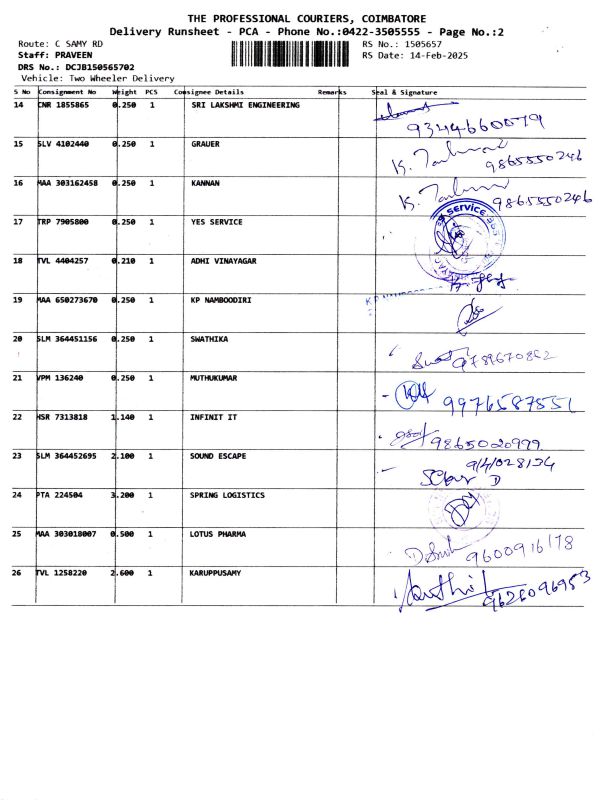 THE PROFESSIONAL COURIERS, COIMBATORE
Delivery Runsheet - PCA - Phone No.:0422-3505555 - Page No.:2
Route: C SAMY RD RS No.: 1505657
Staff: PRAVEEN RS Date: 14-Feb-2025
DRS No.: DCJB150565702
Vehicle: Two Wheeler Delivery
S No Consignment No Weight PCS Consignee Details Remarks Seal & Signature
14 CNR 1855865 0.250 1 SRI LAKSHMI ENGINEERING
9344660079
15 SLV 4102440 0.250 1 GRAUER
9865550246
16 MAA 303162458 0.250 1 KANNAN
9865550246
17 TRP 7905800 0.250 1 YES SERVICE
SERVICE
18 TVL 4404257 0.210 1 ADHI VINAYAGAR
19 MAA 650273670 0.250 1 KP NAMBOODIRI
20 SLM 364451156 0.250 1 SWATHIKA
9789670852
21 VPM 136240 0.250 1 MUTHUKUMAR
9976587551
22 HSR 7313818 1.140 1 INFINIT IT
9865020999
23 SLM 364452695 2.100 1 SOUND ESCAPE
24 PTA 224504 3.200 1 SPRING LOGISTICS
25 MAA 303018007 0.500 1 LOTUS PHARMA
9600916178
26 TVL 1258220 2.600 1 KARUPPUSAMY
9626096953